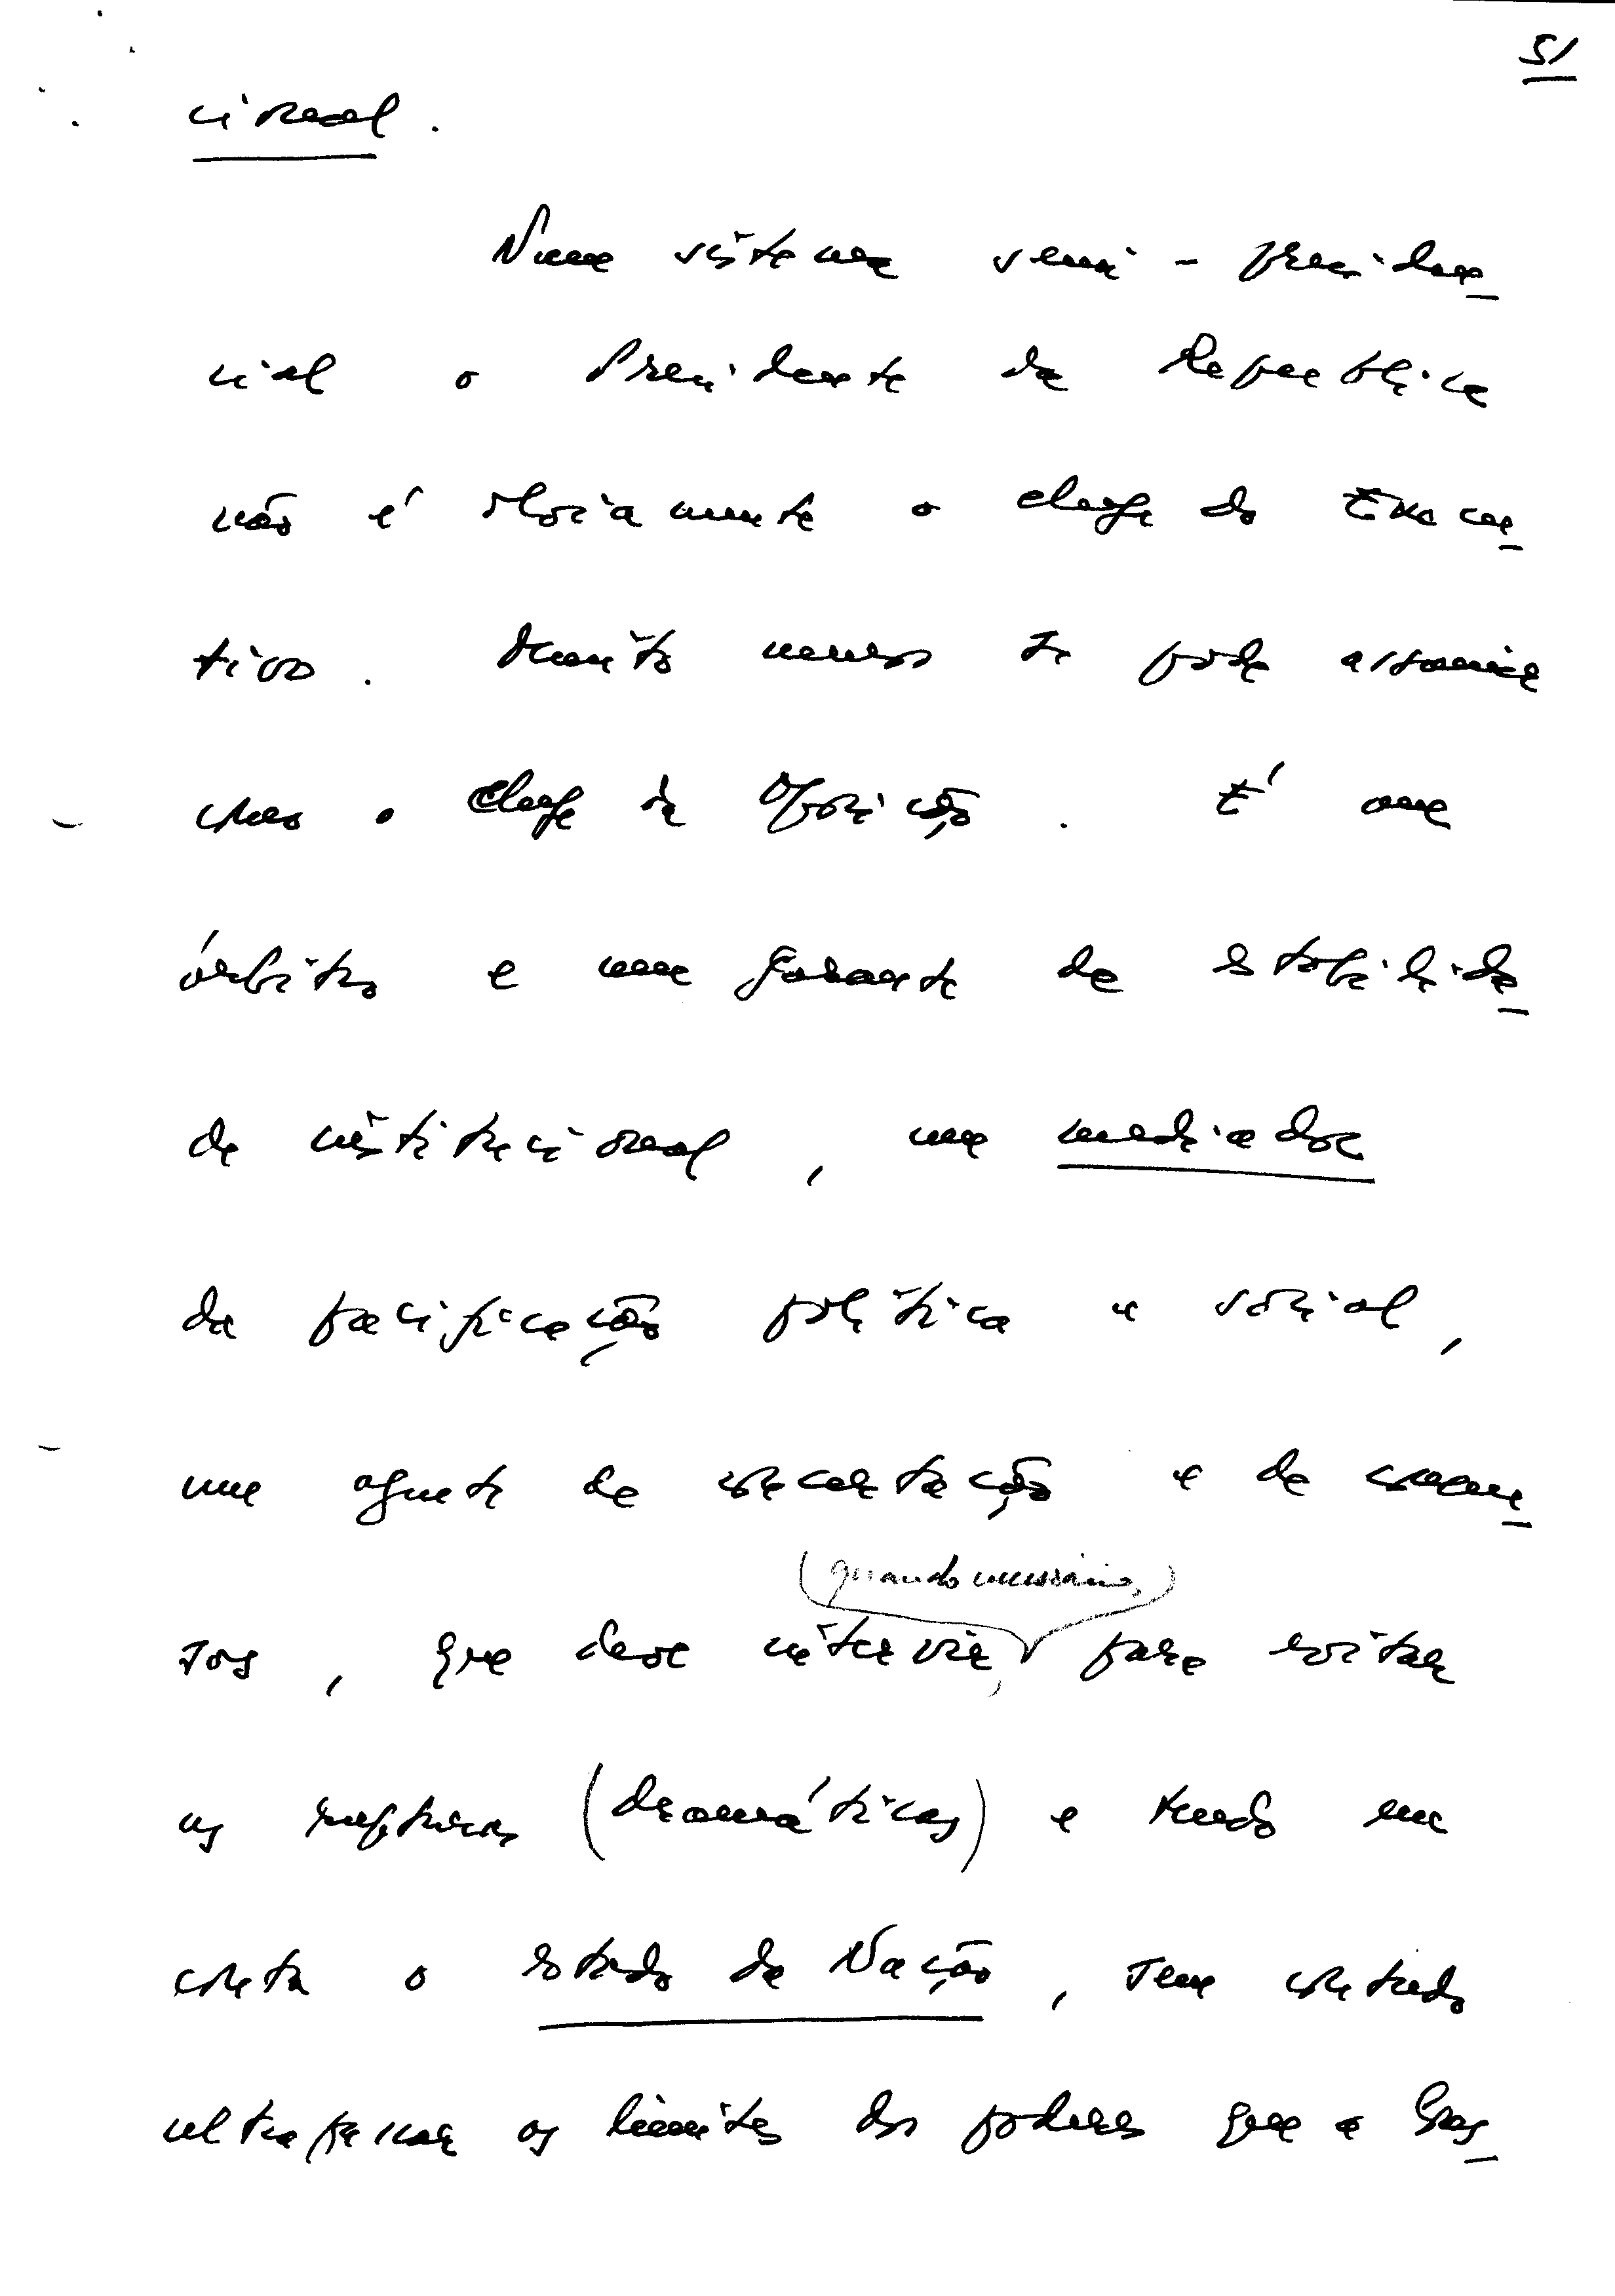 51
cional.
Num sistema semi-presiden_
cial o Presidente da República
não é obviamente o chefe do Execu_
tivo. Muito menos se pode assumir
como o chefe da Oposição. É um
árbitro e um garante da estabilida_
de institucional, um mediador
da pacificação política e social,
um agente de concertação e de consen_
(quando necessário,)
sos, que deve intervir, para evitar
as rupturas (dramáticas) e tendo em
conta o estado da Nação, sem contudo
ultrapassar os limites dos poderes que a Cons_